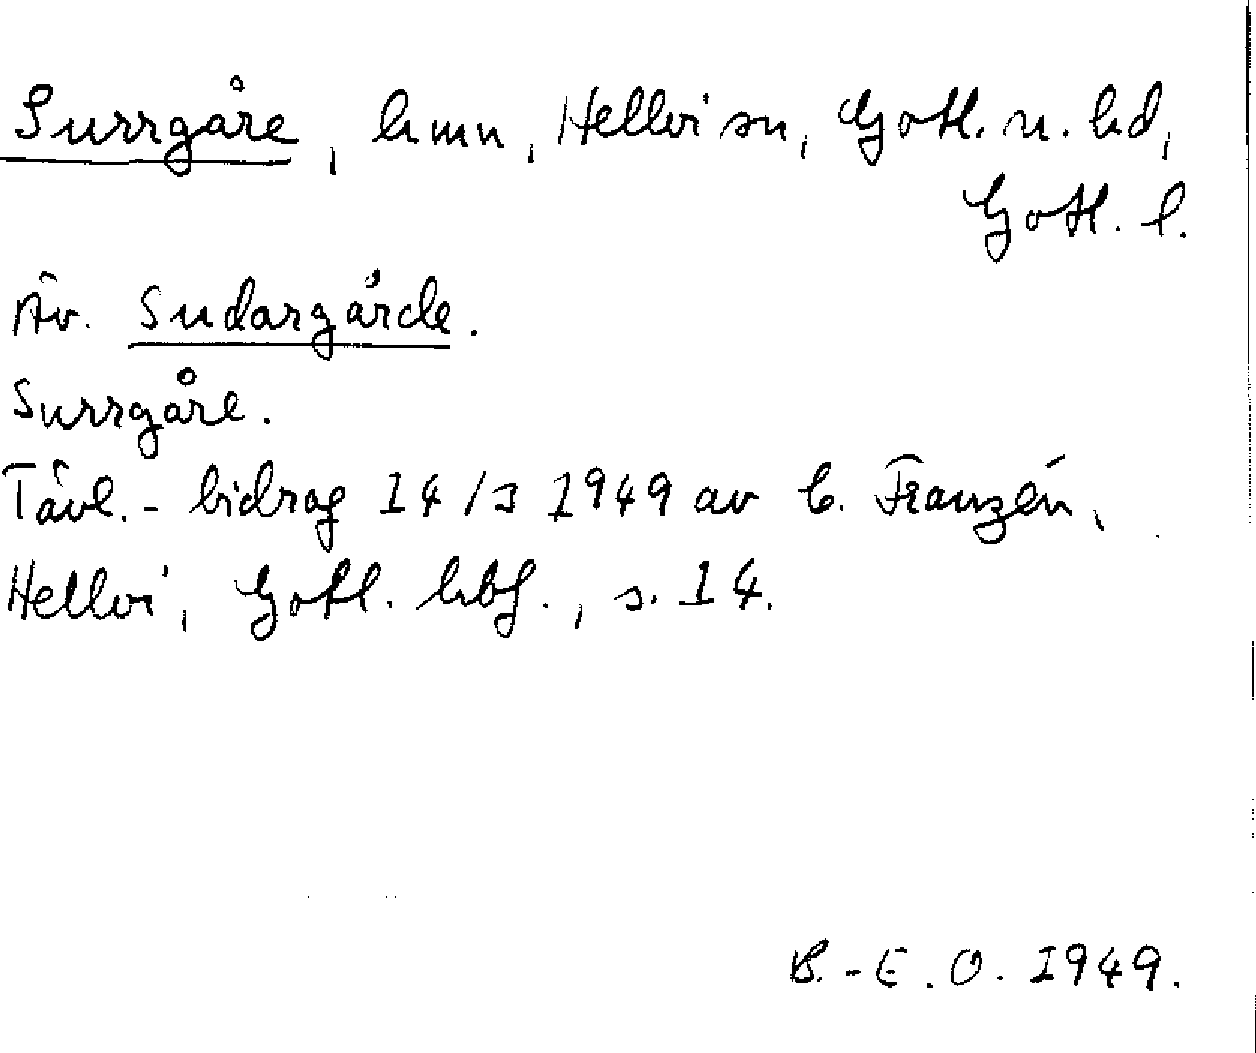 Surrgåre, hmn, Hellvi sn, Gotl. n. hd,
Gotl. l.
Äv. Sudargårde.
Surrgåre.
Tävl.-bidrag 14/3 1949 av C. Franzén,
Hellvi, Gotl. hbf., s. 14.
B.-E. O. 1949.